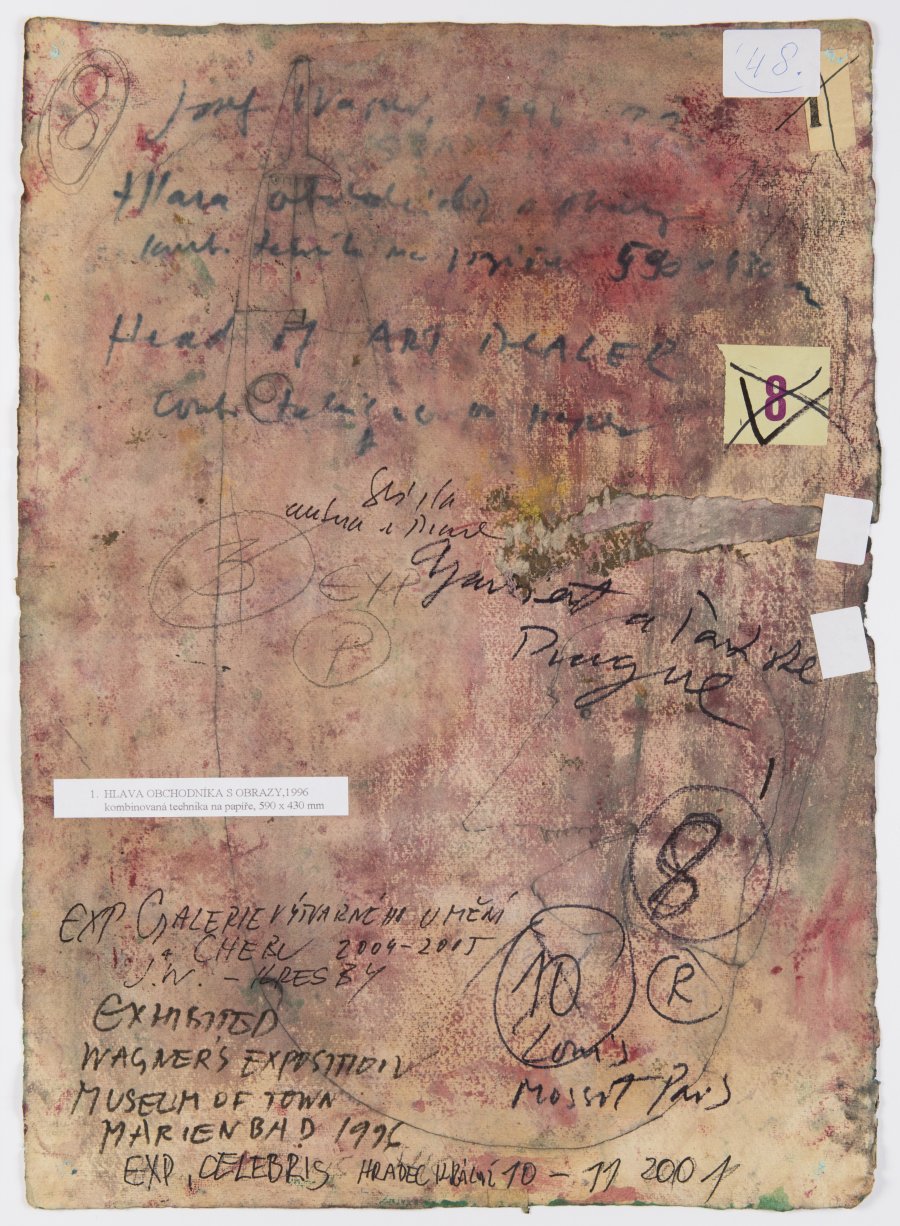 8
48.
1
Josef Wagner, 1996
Hlava obchodníka s obrazy
komb. technika na papíře 590 x 430
Head of ART DEALER
Comb. technique on paper
8
autora
3
EXP
P
a
Prague
1. HLAVA OBCHODNÍKA S OBRAZY,1996
kombinovaná technika na papíře, 590 x 430 mm
8
EXP. GALERIE VÝTVARNÉHO UMĚNÍ
CHEBU 2004-2005
J.W. - KRESBY
10
R
EXHIBITED
WAGNER'S EXPOSITION
MUSEUM OF TOWN
MARIENBAD 1996
Paris
EXP. CELEBRIS HRADEC KRÁLOVÉ 10 - 11 2001